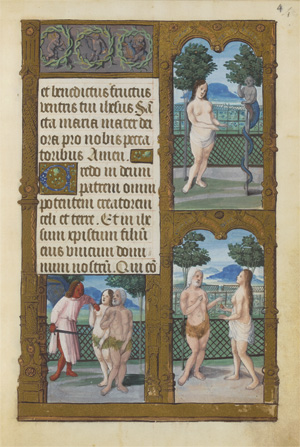 4
et benedictus fructus
ventris tui ihesus Sā
cta maria mater dei
ora pro nobis pecca
toribus Amen.
redo in deum
patrem omni
potentem creatorem
celi et terre. Et in ihe
sum xpistum filiū
eius vnicum domi
num nostrū. Qui cō